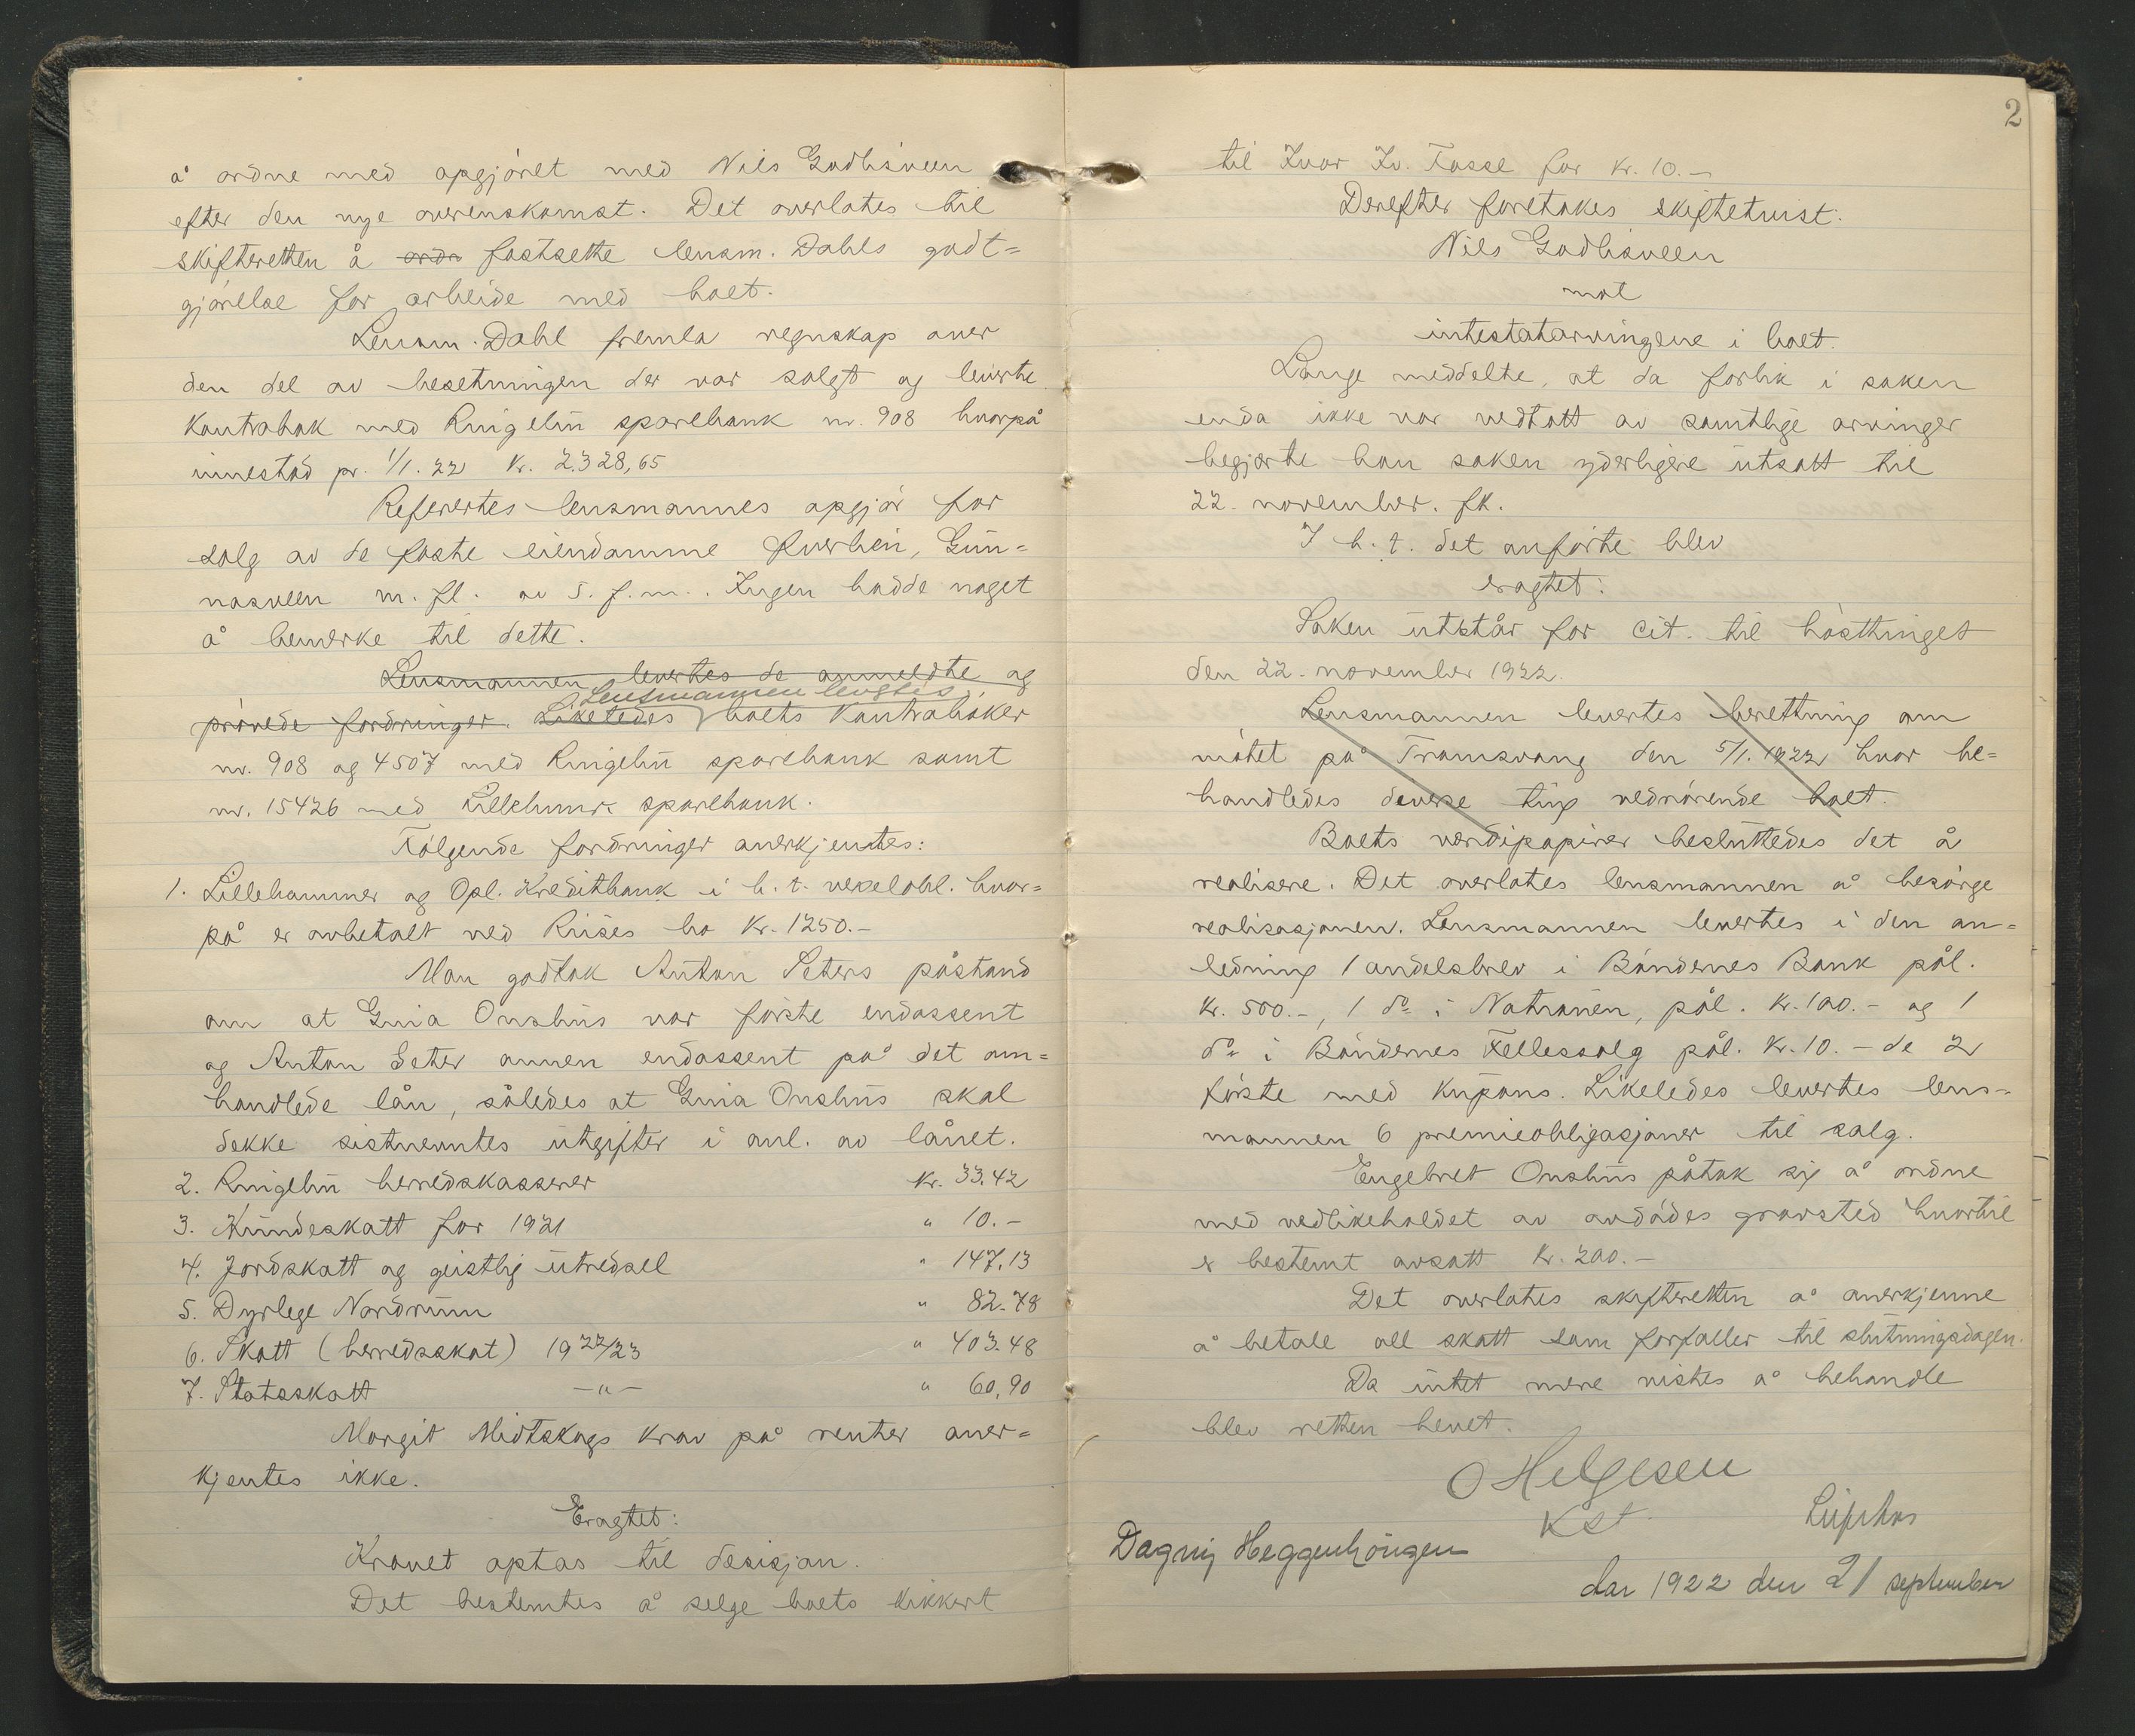 å ordne med opgjöret med Nils Godlisveen
efter den nye overenskomst. Det overlates til
skifteretten å ordn fastsette lensm. Dahls godt=
gjörelse for arbeide med boet.
Lensm. Dahl fremla regnskap over
den del av besetningen der var solgt og leverte
kontrabok med Ringebu sparebank nr. 908 hvorpå
innestod pr. 1/1. 22 kr. 2.328,65
Referertes lensmannes opgjör for
salg av de faste eiendomme Furheim, Gun=
nasveen m. fl. av 5. f. m.. Ingen hadde noget
å bemerke til dette.
Lensmannen levertes de anmeldte og
prövede fordringer. Likeledes Lensmannen levertes boets kontraböker
nr. 908 og 4507 med Ringebu sparebank samt
nr. 15426 med Lillehmr. sparebank.
Fölgende fordringer anerkjentes:
1. Lillehammer og Opl. Kreditbank i h. t. vekselobl. hvor=
på er avbetalt ved Riises bo kr. 1250.-
Man godtok Anton Seters påstand
om at Guria Onshus var förste endossent
og Anton Seter annen endossent på det om=
handlede lån, således at Guria Onshus skal
dekke sistnevntes utgifter i anl. av lånet.
2. Ringebu herredskasserer kr. 33.42
3. Hundeskatt for 1921 " 10.-
4. Jordskatt og geistlig utredsel " 147.13
5. Dyrlege Nordrum " 82.78
6. Skatt (herredsskat) 1922/23 " 403.48
7. Statsskatt -"- " 60,90
Margit Midtskogs krav på renter aner=
kjentes ikke.
Eragtet:
Kravet optas til desisjon.
Det bestemtes å selge boets kikkert
2
til Ivar Iv. Fosse for kr. 10.-
Derefter foretokes skiftetvist:
Nils Godlisveen
mot
intestatarvingene i boet.
Lange meddelte, at da forlik i saken
enda ikke var vedtatt av samtlige arvinger
begjærte han saken yderligere utsatt til
22. november. fk.
I h. t. det anförte blev
eragtet:
Saken utstår for cit. til hösttinget
den 22. november 1922.
Lensmannen levertes berettning om
mötet på Tromsvang den 5/1. 1922 hvor be=
handledes diverse ting vedrörende boet.
Boets verdipapirer besluttedes det å
realisere. Det overlates lensmannen å besörge
realisasjonen. Lensmannen levertes i den an=
ledning 1 andelsbrev i Böndernes Bank pål.
kr. 500.-, 1 do i Nationen, pål. kr. 100.- og 1
do i Böndernes Fellessalg pål. kr. 10.- de 2
förste med kupons. Likeledes levertes lens=
mannen 6 premieobligasjoner til salg.
Engebret Onshus påtok sig å ordne
med vedlikeholdet av avdödes gravsted hvortil
er bestemt avsatt kr. 200.-
Det overlates skifteretten å anerkjenne
å betale all skatt som forfaller til slutningsdagen.
Da intet mere vistes å behandle
blev retten hevet.
O Helgesen
Kst.
Dagny Heggenhougen
Aar 1922 den 21 september